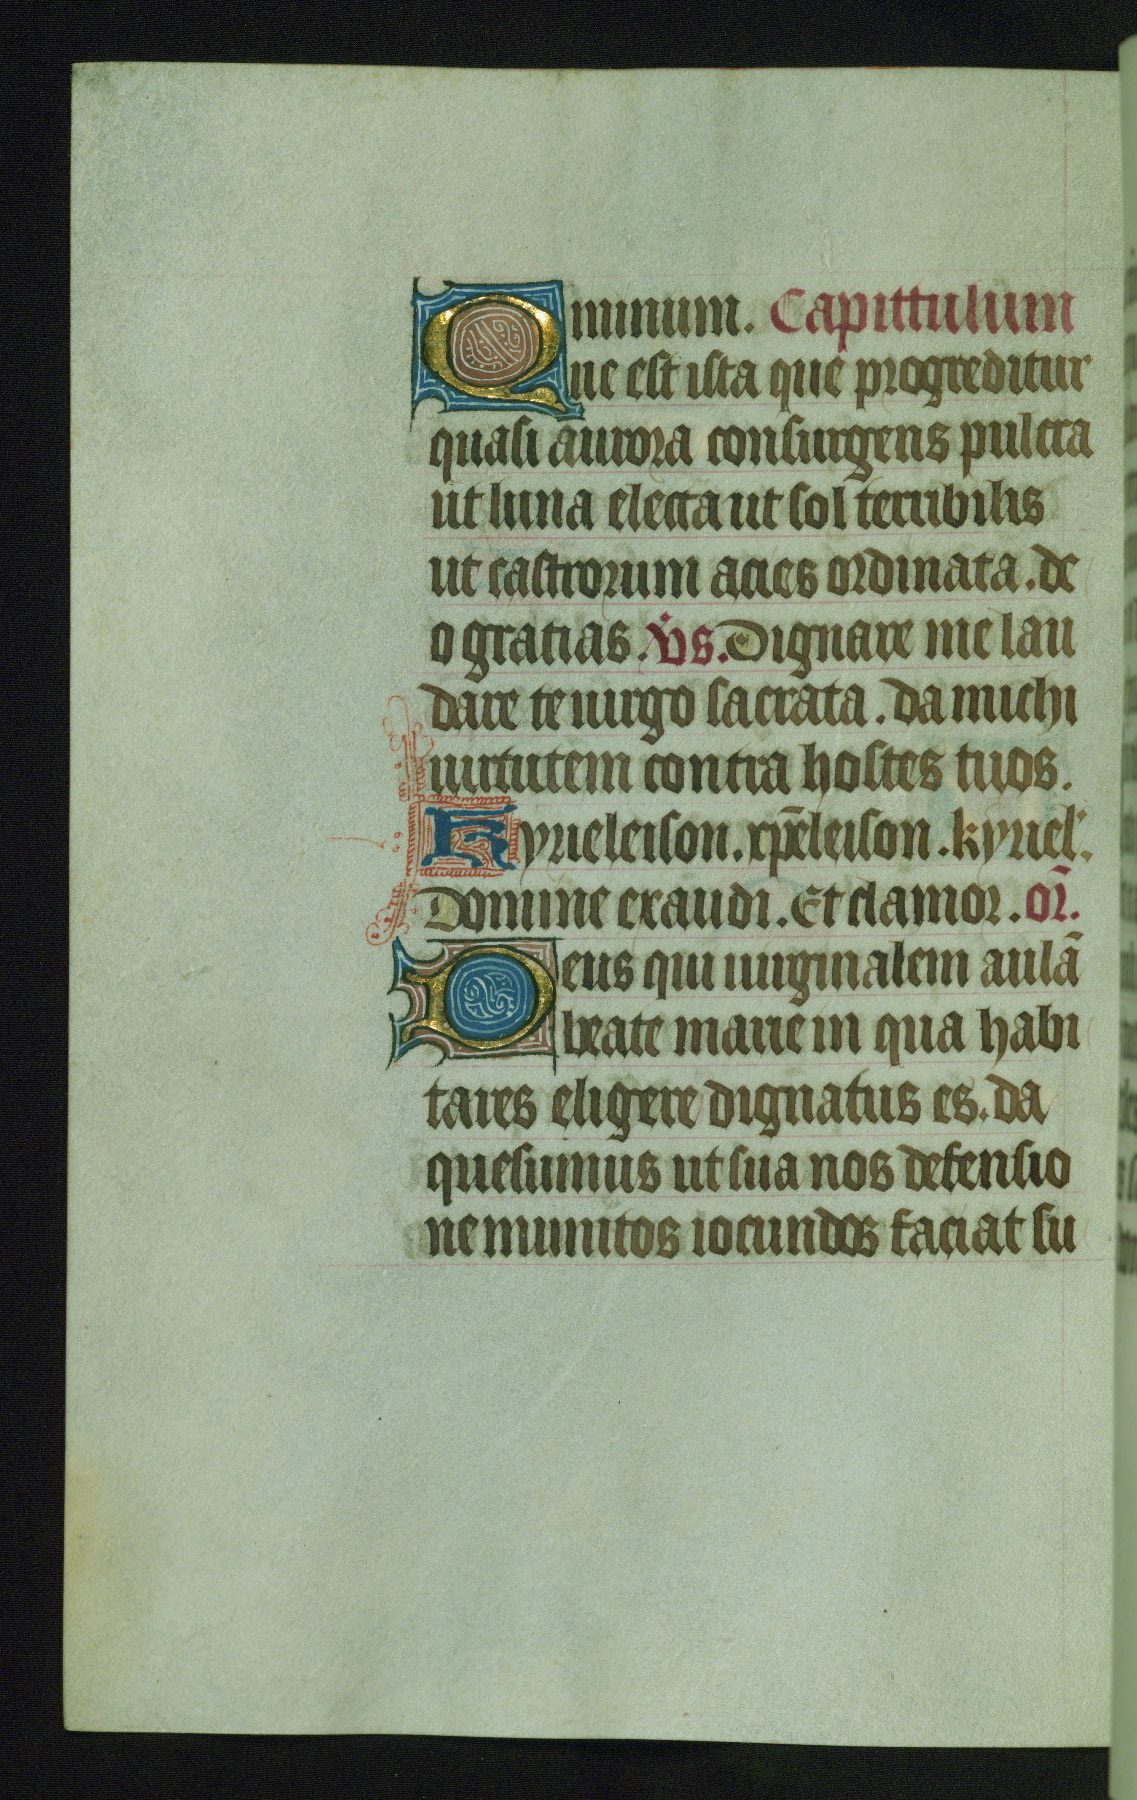 minum. Capittulum
Que est ista que progreditur
quasi aurora consurgens pulcra
ut luna electa ut sol terribilis
ut castrorum acies ordinata. de
o gratias. v̇s. Dignare me lau
dare te uirgo sacrata. da michi
uirtutem contra hostes tuos.
Kyrieleison. xp̄eleison. kyriel'.
Domine exaudi. Et clamor. or̄.
Deus qui uirginalem aulā
beate marie in qua habi
tares eligere dignatus es. da
quesumus ut sua nos defensio
ne munitos iocundos faciat su